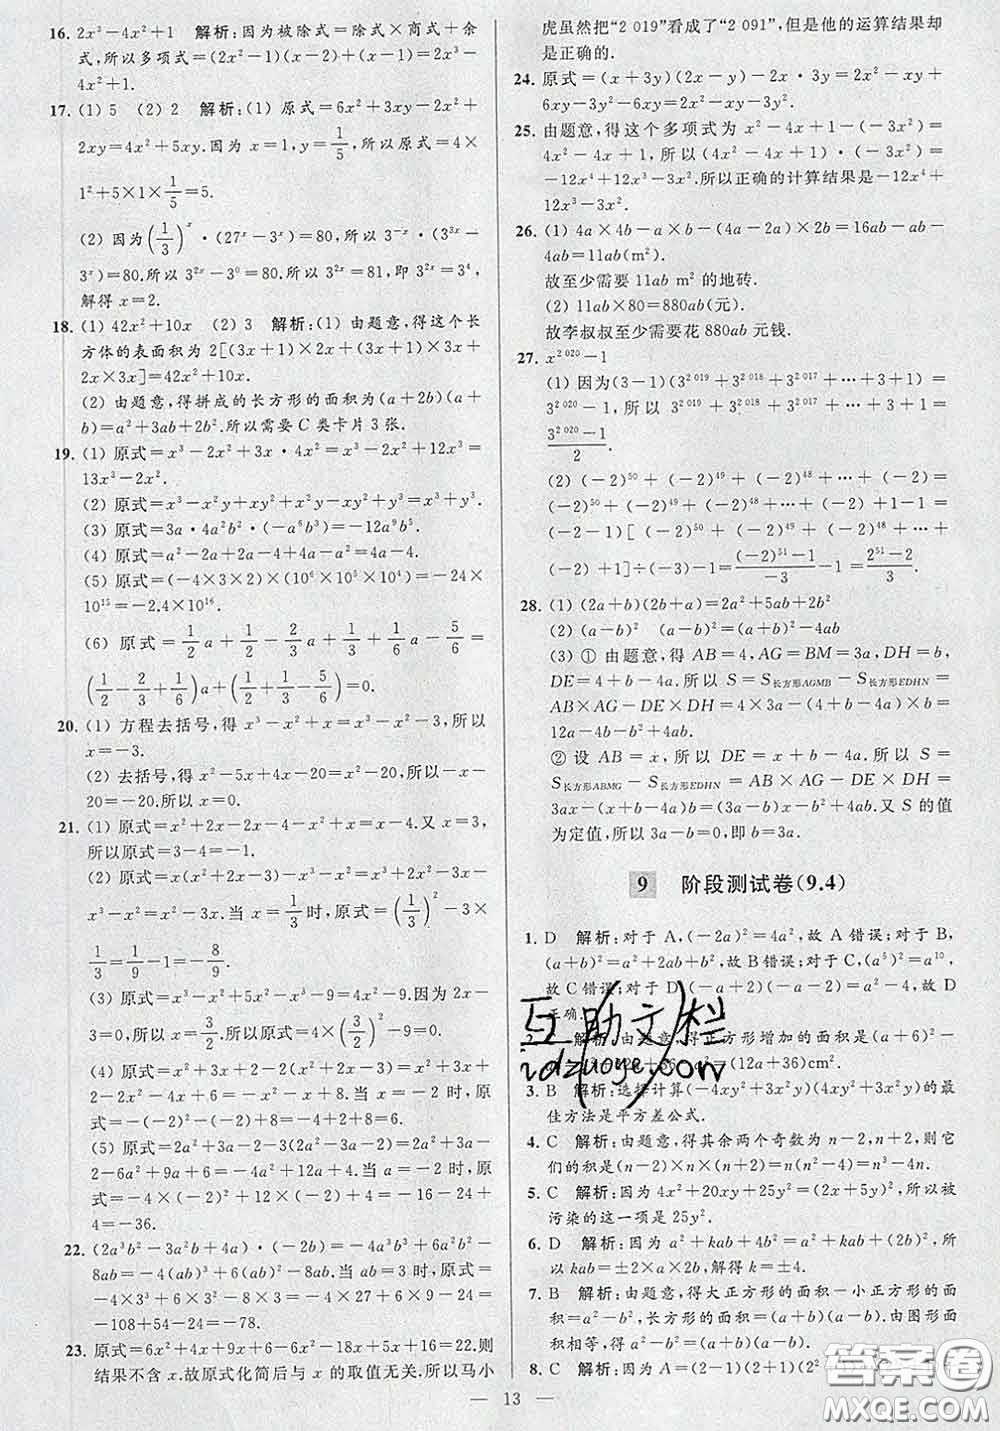 16. 2x³－4x²+1 解析:因为被除式=除式×商式+余
式,所以多项式=(2x²－1)(x－2)+(2x－1)=2x³－
4x²+1.
17. (1) 5 (2) 2 解析:(1) 原式=6x²+3xy－2x²+
2xy=4x²+5xy.因为 x=1,y=1/5,所以原式=4×
1²+5×1×1/5=5.
(2) 因为(1/3)ˣ·(27ˣ－3ˣ)=80,所以 3⁻ˣ·(3³ˣ－
3ˣ)=80.所以 3²ˣ－3⁰=80.所以 3²ˣ=81,即 3²ˣ=3⁴,
解得 x=2.
18. (1) 42x²+10x (2) 3 解析:(1) 由题意,得这个长
方体的表面积为 2[(3x+1)×2x+(3x+1)×3x+
2x×3x]=42x²+10x.
(2) 由题意,得拼成的长方形的面积为(a+2b)(a+
b)=a²+3ab+2b².所以需要 C 类卡片 3张.
19. (1) 原式=x³－2x²+3x·4x²=x³－2x²+12x³=
13x³－2x².
(2) 原式=x³－x²y+xy²+x²y－xy²+y³=x³+y³.
(3) 原式=3a·4a²b²·(－a⁶b³)=－12a⁹b⁵.
(4) 原式=a²－2a+2a－4－a²+a=a－4.
(5) 原式=(－4×3×2)×(10⁶×10⁵×10⁴)=－24×
10¹⁵=－2.4×10¹⁶.
(6) 原式=1/2a+1/2－2/3a+1/3+1/6a－5/6=
(1/2－2/3+1/6)a+(1/2+1/3－5/6)=0.
20. (1) 方程去括号,得 x³－x²+x=x³－x²－3,所以
x=－3.
(2) 去括号,得 x²－5x+4x－20=x²,所以－x－
20=－20.所以 x=0.
21. (1) 原式=x²+2x－2x－4－x²+x=x－4.又 x=3,
所以原式=3－4=－1.
(2) 原式=x(x²+2x－3)－x³－x²=x³+2x²－3x－
x³－x²=x²－3x.当 x=1/3时,原式=(1/3)²－3×
1/3=1/9－1=－8/9.
(3) 原式=x³－x³－9+4x²=4x²－9.因为 2x－
3=0,所以 x=3/2.所以原式=4×(3/2)²－9=0.
(4) 原式=x³+2x²+4x－2x²－4x－8－x³+3x²+
4x－x²－4x+6=－x³－2.当 x=－2 时,原式=
－(－2)³－2=－(－8)－2=8－2=6.
(5) 原式=2a³+3a²－2a³－3a²+2a+3－2a－
2－6a²+9a+6=
当 a=－2 时,
原式=
4=－36.
22. (2a³b²－3a²b+4a)·(－2b)=－4a³b³+6a²b²－
8ab=－4(ab)³+6(ab)²－8ab.当 ab=3 时,原式=
－4×3³+6×3²－8×3=－4×27+6×9－24=
－108+54－24=－78.
23. 原式=6x²－9x+4x+6－6x²－18x+5x+16=22.则
结果不含 x.故原式化简后与 x 的取值无关.所以马小
虎虽然把“2 019”看成了“2 091”,但是他的运算结果却
是正确的.
24. 原式=(x+3y)(2x－y)－2x·3y=2x²－xy+
6xy－3y²－6xy=2x²－xy－3y².
25. 由题意,得这个多项式为 x²－4x+1－(－3x²)=
4x²－4x+1,所以(4x²－4x+1)·(－3x²)=
－12x⁴+12x³－3x².所以正确的计算结果是－12x⁴+
12x³－3x².
26. (1) 4a×4b－a×b－(4a－2a)×2b=16ab－ab－
4ab=11ab(m²).
故至少需要 11ab m² 的地砖.
(2) 11ab×80=880ab(元).
故李叔叔至少需要花 880ab 元钱.
27. x²⁰²⁰－1
(1) 因为(3－1)(3²⁰¹⁹+3²⁰¹⁸+3²⁰¹⁷+…+3+1)=
3²⁰²⁰－1,所以 3²⁰¹⁹+3²⁰¹⁸+3²⁰¹⁷+…+3+1=
(3²⁰²⁰－1)/2.
(2) (－2)⁵⁰+(－2)⁴⁹+(－2)⁴⁸+…+(－2)=
(－2)⁵⁰+(－2)⁴⁹+(－2)⁴⁸+…+(－2)+1－1=
(－2－1)[(－2)⁵⁰+(－2)⁴⁹+(－2)⁴⁸+…+
(－2)+1]÷(－2－1)－1=((－2)⁵¹－1)/－3－1=(2⁵¹－2)/3.
28. (1) (2a+b)(2b+a)=2a²+5ab+2b²
(2) (a－b)² (a－b)²=(a+b)²－4ab
(3) ① 由题意,得 AB=4,AG=BM=3a,DH=b,
DE=4+b－4a.所以 S=S长方形AGMB－S长方形EDHN=
AB×AG－DE×DH=4×3a－(4+b－4a)×b=
12a－4b－b²+4ab.
② 设 AB=x,所以 DE=x+b－4a.所以 S=
S长方形ABMG－S长方形EDHN=AB×AG－DE×DH=
3ax－(x+b－4a)b=(3a－b)x－b²+4ab.又 S 的值
为定值,所以 3a－b=0,即 b=3a.
9 阶段测试卷(9.4)
1. D 解析:对于 A,(－2a)²=4a²,故 A 错误;对于 B,
(a+b)²=a²+2ab+b²,故 B 错误;对于 C,(a⁵)²=a¹⁰,
故 C 错误;对于 D,(－a+2)(－a－2)=a²－4,故 D
正确.
2. 解析:由题意,得正方形增加的面积是(a+6)²－
=(12a+36)cm².
3. B 解析:选择计算(－4xy²+3x²y)(4xy²+3x²y)的最
佳方法是平方差公式.
4. C 解析:由题意,得其余两个奇数为 n－2,n+2,则它
们的积是(n－2)×n×(n+2)=n(n²－4)=n³－4n.
5. C 解析:因为 4x²+20xy+25y²=(2x+5y)²,所以被
污染的这一项是 25y².
6. D 解析:因为 a²+kab+4b²=a²+kab+(2b)²,所
以 kab=±2×a×2b,解得 k=±4.
7. B 解析:由题意,得大正方形的面积－小正方形的面
积=a²－b²,长方形的面积=(a+b)(a－b).由图形面
积相等,得 a²－b²=(a+b)(a－b).
8. C 解析:因为 A=(2－1)(2+1)(2²
— 13 —
互助文栏
idzuoye.com
答案圈
MXQE.COM